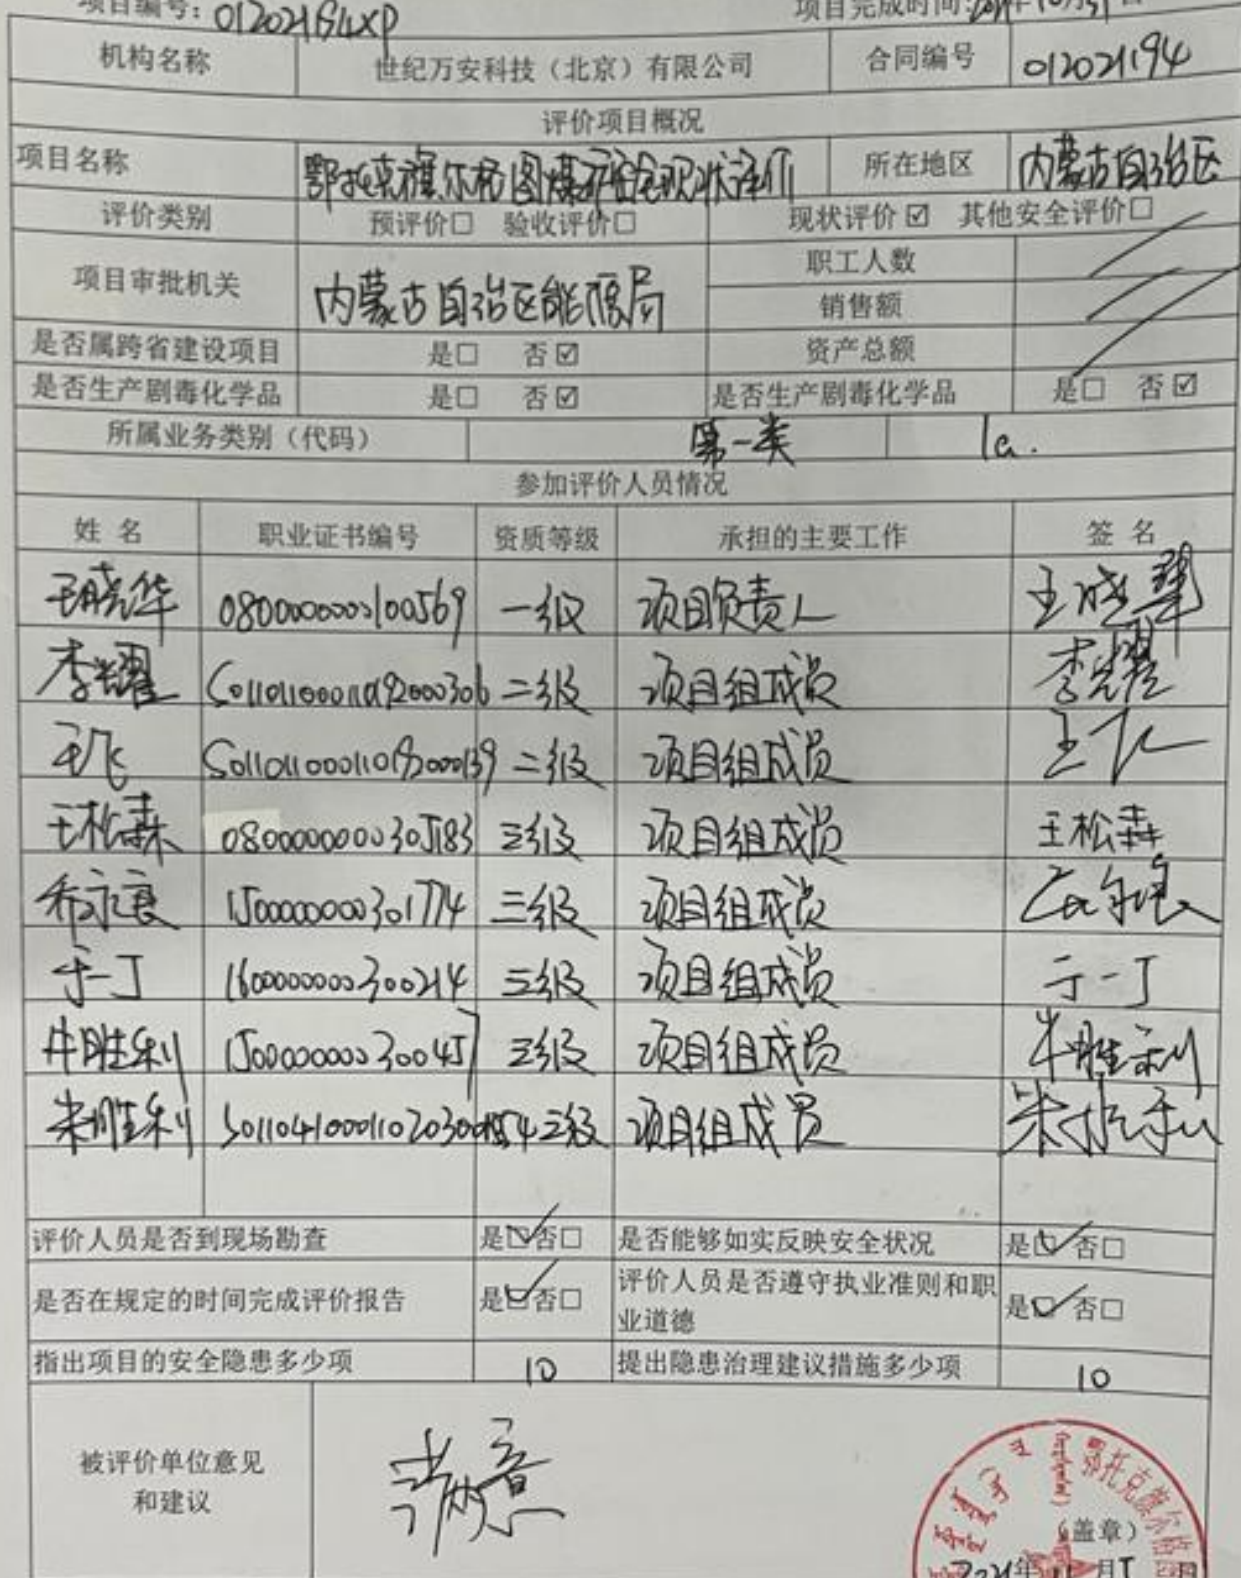 项目编号：
项目完成时间:2021年10月31日
机构名称 世纪万安科技（北京）有限公司 合同编号 012021194
评价项目概况
项目名称 鄂托克旗尔格图煤矿安全现状评价 所在地区 内蒙古自治区
评价类别 预评价□ 验收评价□ 现状评价☑ 其他安全评价□
项目审批机关 内蒙古自治区能源局 职工人数
销售额
是否属跨省建设项目 是□ 否☑ 资产总额
是否生产剧毒化学品 是□ 否☑ 是否生产剧毒化学品 是□ 否☑
所属业务类别（代码） 第一类 1a.
参加评价人员情况
姓 名 职业证书编号 资质等级 承担的主要工作 签 名
王晓华 0800000000100569 一级 项目负责人 王晓华
李光耀 二级 项目组成员 李光耀
王飞 二级 项目组成员 王飞
王松森 0800000000305183 三级 项目组成员 王松森
乔永良 1500000000301774 三级 项目组成员
于一丁 1600000000300214 三级 项目组成员 于一丁
牛胜利 1500000000300457 三级 项目组成员 牛胜利
朱胜利 三级 项目组成员 朱胜利
评价人员是否到现场勘查 是☑否□ 是否能够如实反映安全状况 是☑否□
是否在规定的时间完成评价报告 是☑否□ 评价人员是否遵守执业准则和职 是☑否□
业道德
指出项目的安全隐患多少项 10 提出隐患治理建议措施多少项 10
被评价单位意见
和建议
满意
鄂托克旗尔格图
（盖章）
2021年11月5日